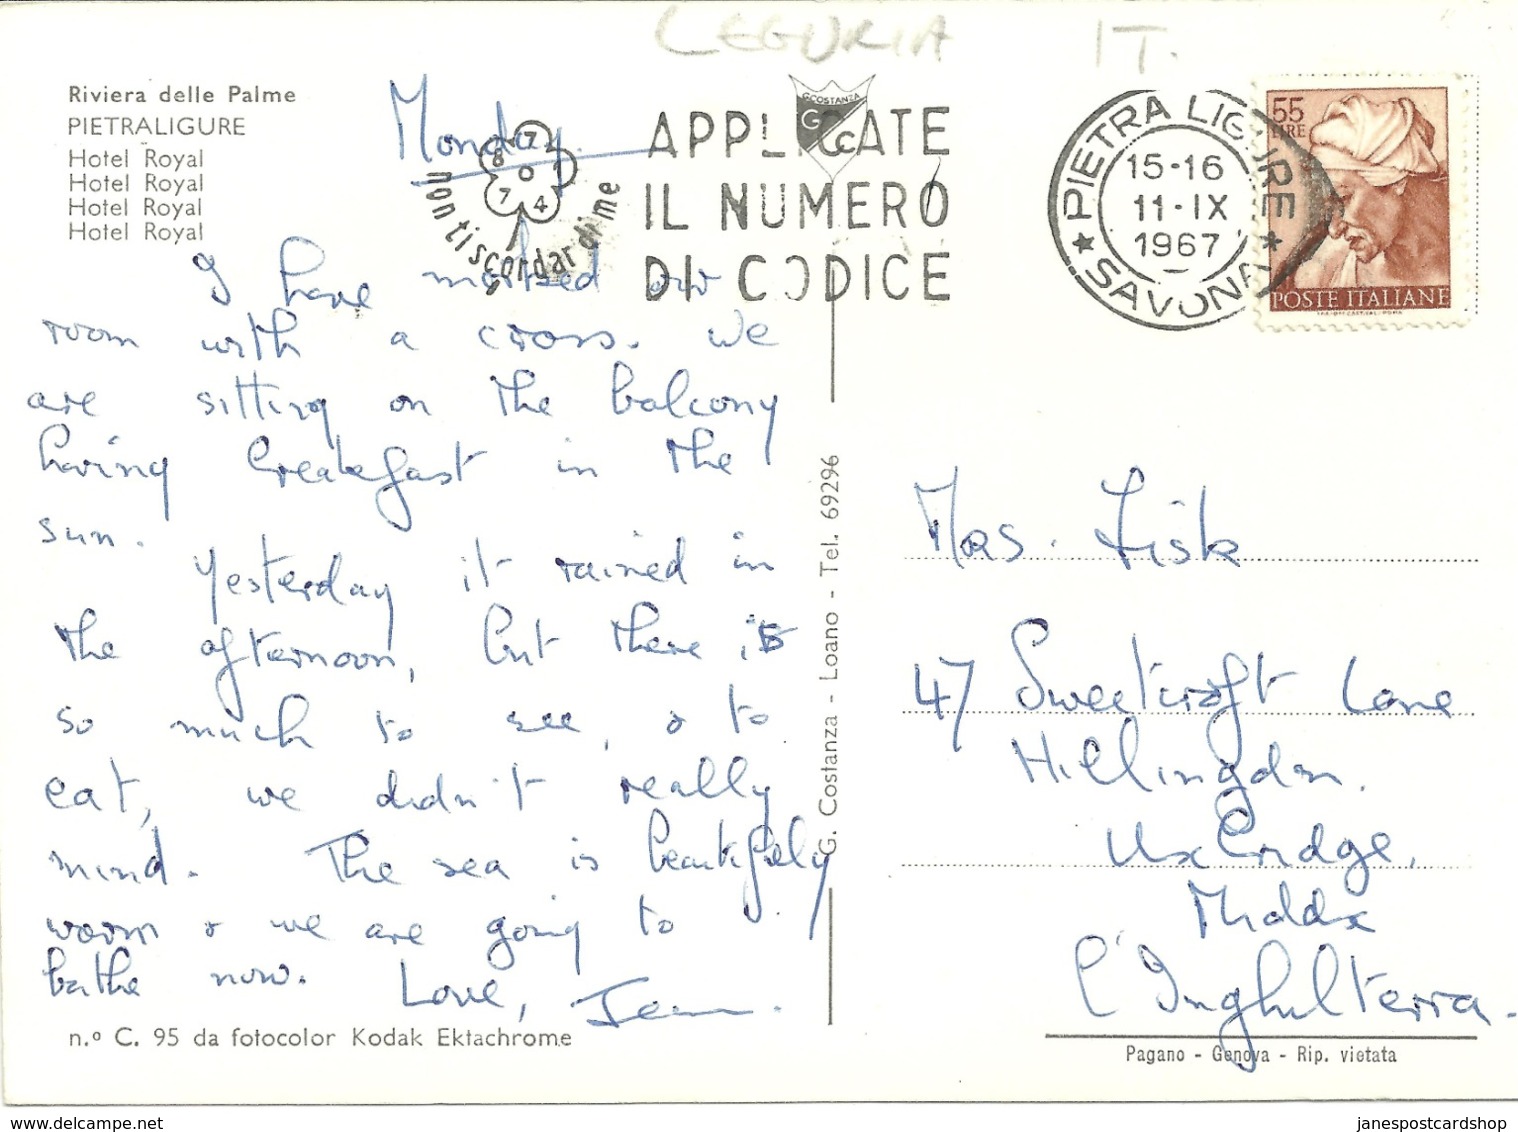 LEGURIA IT.
Riviera delle Palme
PIETRALIGURE
Hotel Royal
Hotel Royal
Hotel Royal
Hotel Royal
Monday.
I have marked our
room with a cross. We
are sitting on the balcony
having breakfast in the
sun.
Yesterday it rained in
the afternoon, but there is
so much to see, & to
eat, we didn't really
mind. The sea is beautifully
warm & we are going to
bathe now. Love, Jean.
n.º C. 95 da fotocolor Kodak Ektachrome
8 7 0 1 7 4
non ti scordar di me
G.COSTANZA
G C
APPLICATE
IL NUMERO
DI CODICE
PIETRA LIGURE
15-16
11-IX
1967
★ SAVONA ★
55
LIRE
POSTE ITALIANE
G. Costanza - Loano - Tel. 69296
Mrs. Fisk
47 Sweetcroft Lane
Hillingdon.
Uxbridge,
Middx
L'Inghilterra.
Pagano - Genova - Rip. vietata
janespostcardshop
www.delcampe.net